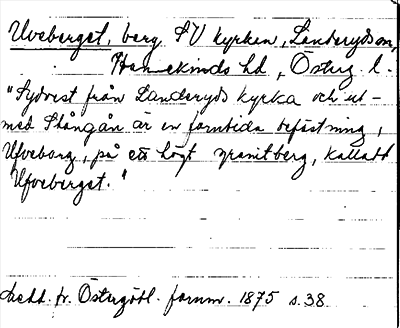 Uveberget, berg SV kyrkan, Landeryds sn,
Hanekinds hd, Österg. l.
"Sydvest från Landeryds kyrka och ut-
med Stångån är en forntida befästning,
Ufveborg, på ett högt granitberg, kalladt
Ufveberget."
Medd. fr. Östergötl. fornm. 1875 s. 38